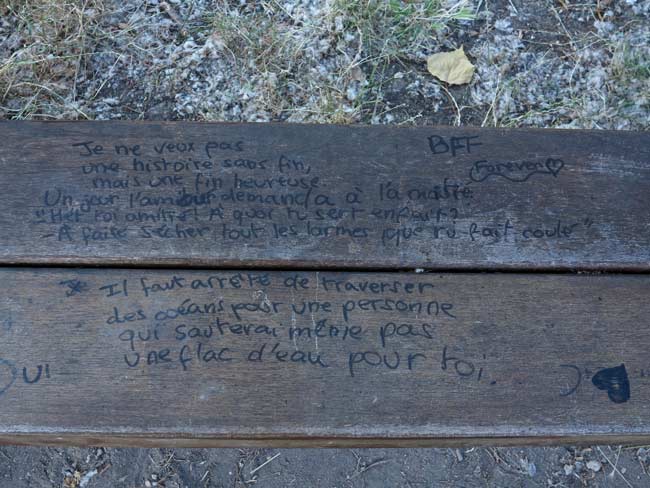 Je ne veux pas
une histoire sans fin,
mais une fin heureuse.
BFF
Forever
Un jour l'amour demanda à l'amitié
"Hey toi amitié! A quoi tu sert enfait?
- A faire sécher tout les larmes que tu fait coulé"
Il faut arrêté de traverser
des océans pour une personne
qui sauterai même pas
une flac d'eau pour toi.